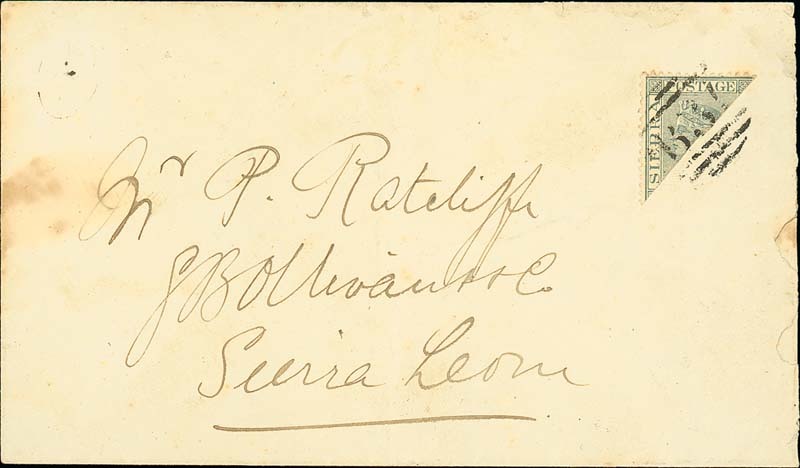 POSTAGE
SIERRA
Mr P. Ratcliff
G B Ollivant & Co.
Sierra Leone